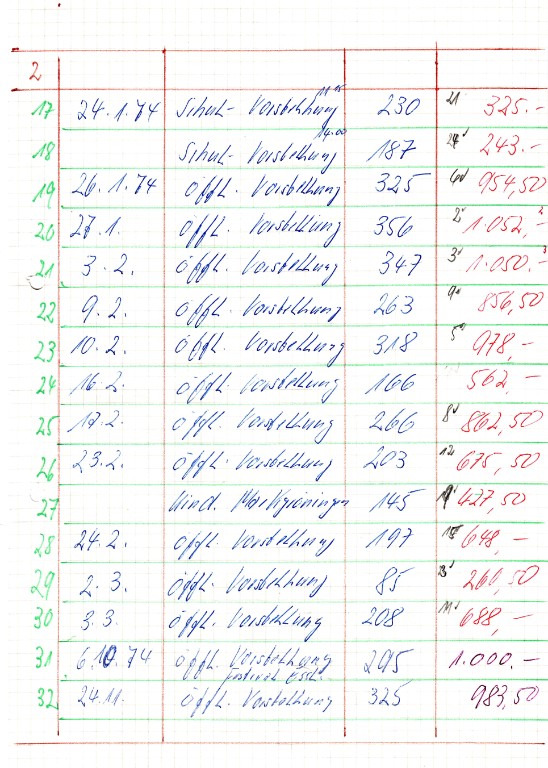 2
17 24.1.74 Schul-Vorstellung 230 21 325.-
14.00
18 Schul-Vorstellung 187 243.-
19 26.1.74 Öffl. Vorstellung 325 954,50
20 27.1. Öffl. Vorstellung 356 2 1.052,-
21 3.2. Öffl. Vorstellung 347 3 1.050.-
22 9.2. Öffl. Vorstellung 263 9 856,50
23 10.2. Öffl. Vorstellung 318 5 978,-
24 16.2. Öffl. Vorstellung 166 562,-
25 17.2. Öffl. Vorstellung 266 8 862,50
26 23.2. Öffl. Vorstellung 203 12 675,50
27 145 427,50
28 24.2. Öffl. Vorstellung 197 648,-
29 2.3. Öffl. Vorstellung 85 260,50
30 3.3. Öffl. Vorstellung 208 11 688,-
31 6.10.74 Öffl. Vorstellung 295 1.000.-
32 24.11. Öffl. Vorstellung 325 983,50